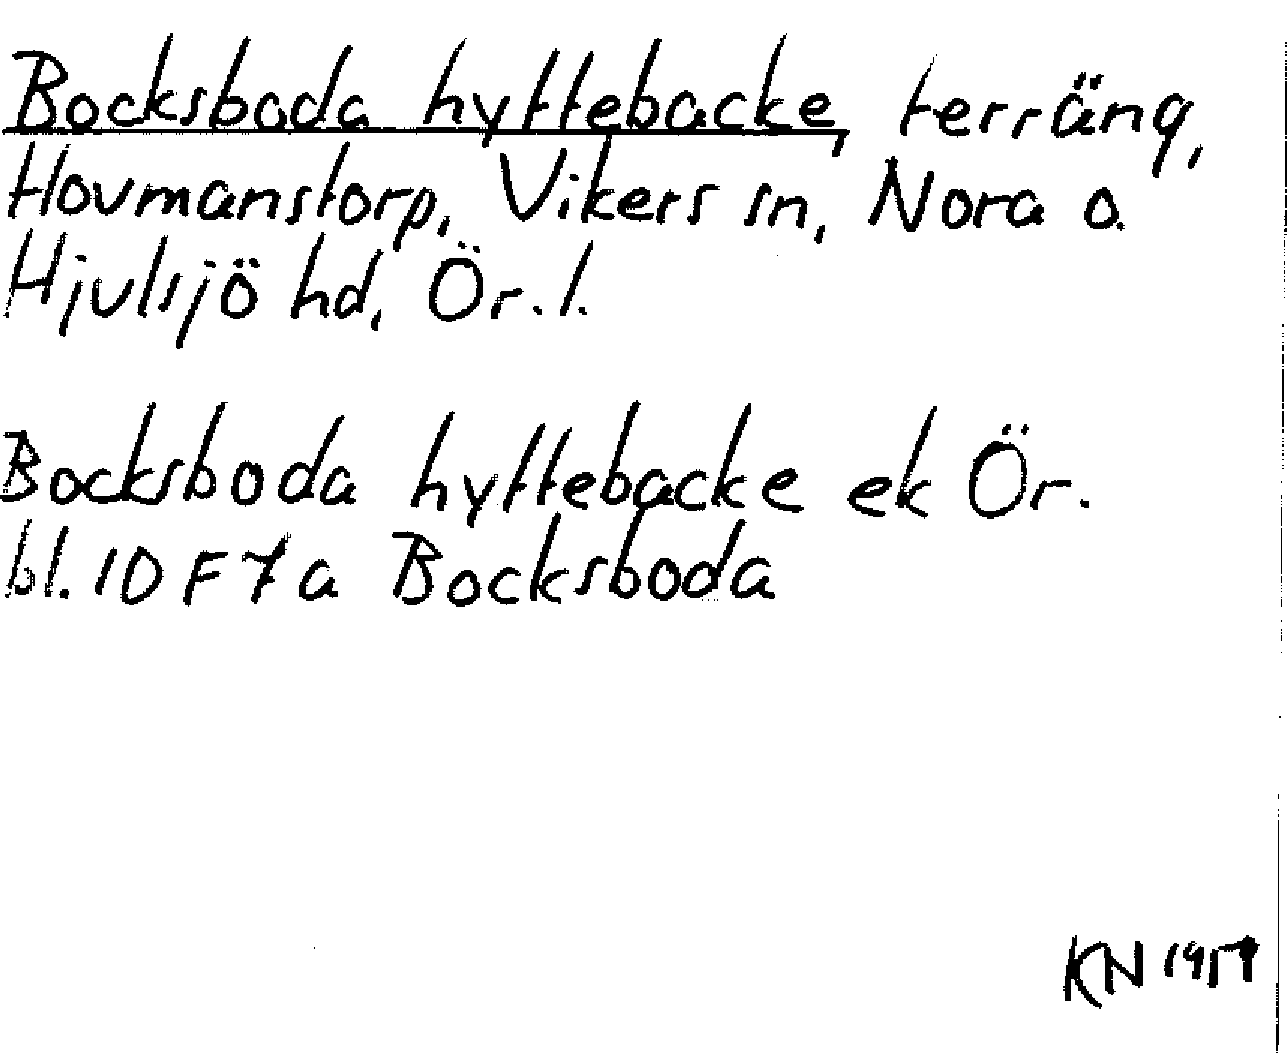 Bocksboda hyttebacke, terräng,
Hovmanstorp, Vikers sn, Nora o.
Hjulsjö hd, Ör. l.
Bocksboda hyttebacke ek Ör.
bl. 10 F 7 a Bocksboda
KN